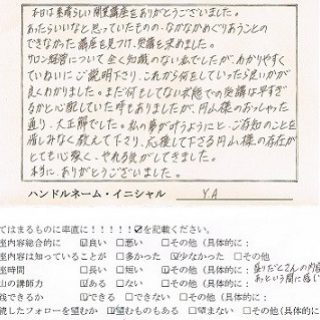 本日は素晴らしい開業講座をありがとうございました。
あったらいいなと思っていたものの、なかなかめぐりあうことの
できなかった講座を見つけ、受講を決めました。
サロン経営について全く知識のない私でしたが、わかりやすく
ていねいにご説明下さり、これから何をしていったら良いかが
良くわかりました。まだ何もしてない状態での受講は早すぎ
るかと心配していた時もありましたが、円山様のおっしゃった
通り、大正解でした。私の夢が叶うようにと、ご存知のことを
惜しみなく教えて下さり、応援して下さる円山様の存在が
とても心強く、やれる気がしてきました。
本当に、ありがとうございました。
ハンドルネーム・イニシャル YA
てはまるものに率直に!!!!!☑を記載ください。
座内容総合的に ☑良い □悪い □その他(具体的に:
座内容は知っていることが □多かった ☑少なかった □その他
座時間 □長い □短い ☑その他(具体的に:
あという間に感じ
山の講師力 ☑ある □ない □その他(具体的に:
できるか ☑できる □できない □その他(具体的に:
続したフォローを望むか ☑望むものもある □望まない □その他(具体的に: